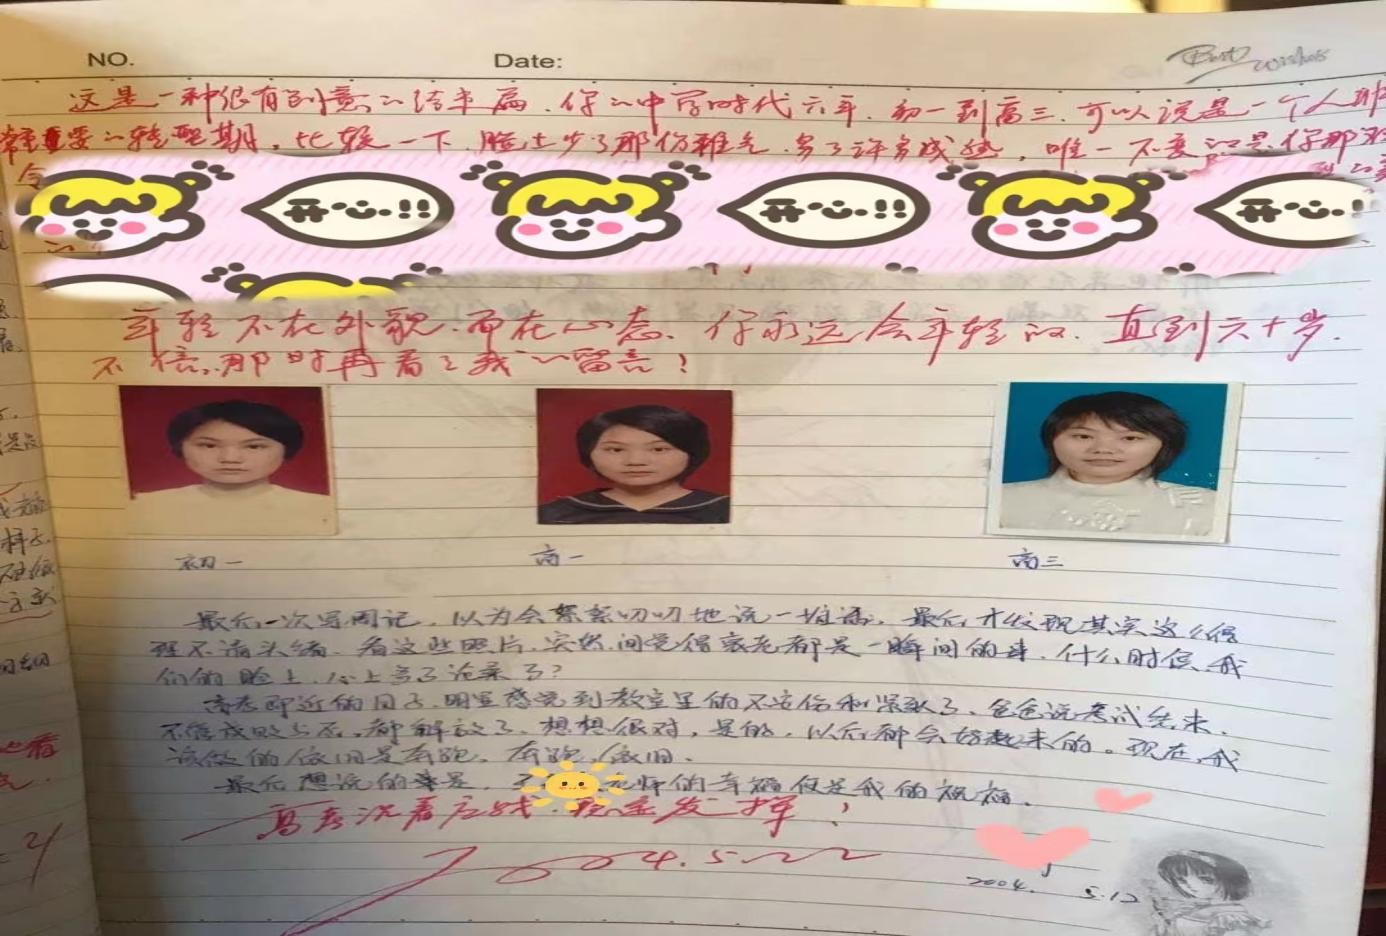 NO. Date: Best wishes
这是一种很有创意的结束篇.你的中学时代六年.初一到高三.可以说是一个人非
常重要的转型期,比较一下.脸上少了那份稚气.多了许多成熟,唯一不变的是你那双
令
开心!! 开心!! 开心!
年轻不在外貌.而在心态.你永远会年轻的.直到六十岁.
不信.那时再看看我的留言!
初一 高一 高三
最后一次写周记,以为会絮絮叨叨地说一堆话,最后才发现其实这么久
理不清头绪.看这些照片,突然间觉得衰老都是一瞬间的事.什么时候,我
们的脸上,心上多了沧桑了?
高考即近的日子,明显感觉到教室里的不安份和紧张了.爸爸说考试结束.
不管成败与否,都解放了.想想很对,是的,以后都会好起来的。现在,我
该做的依旧是奔跑.奔跑.依旧.
最后想说的 是. 老师的幸福便是我的祝福.
高考沉着应战. 发挥!
2004.5.22
2004. 5.12